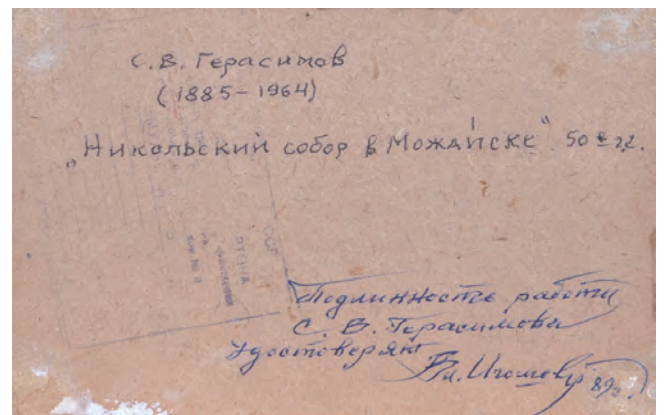 С.В. Герасимов
(1885-1964)
„Никольский собор в Можайске" 50е гг.
Подлинность работы
С. В. Герасимова
Удостоверяю
Вл. Игошев 89г.